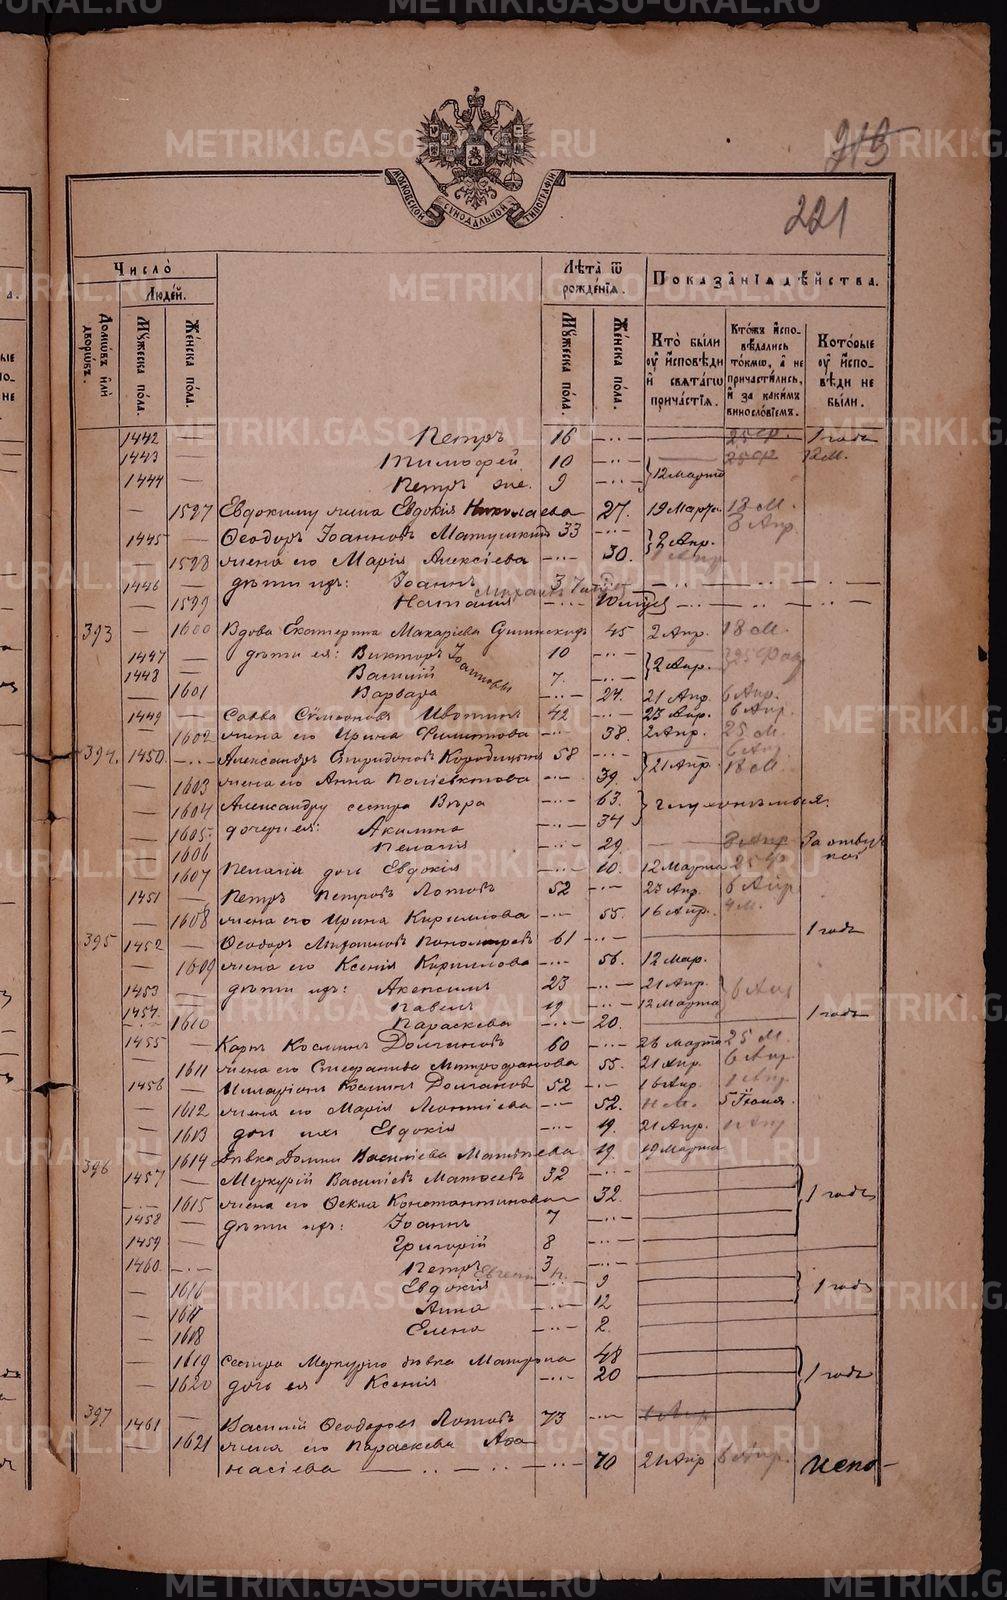 METRIKI.GASO-URAL.RU
221
МОСКОВСКОЙ СѴНОДАЛЬНОЙ ТИПОГРАФІИ
Число̀
Людéй.
Домѡ́въ и҆лѝ дворѡ́въ.
Мꙋ́жеска по́ла.
Же́нска по́ла.
Лѣ́та ѿ рожде́нїѧ.
Мꙋ́жеска по́ла.
Же́нска по́ла.
Показа́нїѧ дѣ́йства.
Кто̀ бы́ли ᲂу҆ и҆́сповѣди и҆ свѧта́гѡ прича́стїѧ.
Кто́жъ и҆спо- вѣ́дались то́кмѡ, а҆ не причасти́лись, и҆ за каки́мъ винословїемъ.
Кото́рые ᲂу҆ и҆́спо- вѣди не бы́ли.
1442 — Петръ 16 — 25 Ф. 1 годъ
1443 — Тимофей 10 — 25 Ф
1444 — Петръ же. 9 — 12 марта
— 1597 Евдокиму жена Евдокія Николаева 27. 19 Марта 18 М.
1445 — Ѳеодоръ Іоанновъ Матушкинъ 33 — 2 Апр. 8 Апр.
— 1598 жена его Марія Алексіева — 30.
1446 — дѣти ихъ: Іоаннъ 3
— 1599 Наталія —
393 — 1600 Вдова Екатерина Макаріева 45 2 Апр. 18 М.
1447 — дѣти ея: Викторъ Іоанновы 10 — 2 Апр.
1448 — Василій 7. —
— 1601 Варвара — 24. 21 Апр. 6 Апр.
1449 — Савва Сѵмеоновъ Ивонинъ 42 — 23 Апр. 6 Апр.
— 1602 жена его Ирина Филиппова — 38. 2 Апр. 25 М.
394. 1450 — Александръ Спиридоновъ 58 — 21 Апр. 6 Апр
— 1603 жена его Анна Поліевктова — 39. 18 М
— 1604 Александру сестра Вѣра — 63. глухонѣмыя.
— 1605 дочери ея: Акилина — 34
— 1606 Пелагія — 29. 8 Апр За отлуч кой
— 1607 Пелагіи дочь Евдокія — 10. 12 Марта 25 Ф
1451 — Петръ Петровъ Лотовъ 52 — 23 Апр. 6 Апр
— 1608 жена его Ирина Кириллова — 55. 16 Апр. 4 М.
395 1452 — Ѳеодоръ Михаиловъ Пономаревъ 61 — 1 годъ
— 1609 жена его Ксенія Кириллова — 56. 12 Мар.
1453 — дѣти ихъ: Алексій 23 — 21 Апр. 6 Апр
1454 — Павелъ 19 — 12 Марта
— 1610 Параскева — 20. 1 годъ
1455 — Карпъ Косминъ Долгановъ 60 — 26 Марта 25 М.
— 1611 жена его Стефанида Митрофанова 55. 21 Апр. 6 Апр
1456 — Иларіонъ Косминъ Долгановъ 52 — 16 Апр. 1 Апр
— 1612 жена его Марія Леонтіева — 52. 11 М. 5 Іюня.
— 1613 дочь ихъ Евдокія 19. 21 Апр. 1 Апр
396 — 1614 Дѣвка Домна Василіева Матвѣева 19. 19 Марта
1457 — Меркурій Василіевъ Матвеевъ 32 —
— 1615 жена его Ѳекла Константинова 32. 1 годъ
1458 — дѣти ихъ: Іоаннъ 7 —
1459 — Григорій 8 —
1460 — Петръ 3 —
— 1616 Евдокія — 9 1 годъ
— 1617 Анна — 12
— 1618 Елена — 2.
— 1619 Сестра Меркурію дѣвка Матрона 48
— 1620 дочь ея Ксенія — 20 1 годъ
397 1461 — Василій Ѳеодоровъ Лотовъ 73 —
— 1621 жена его Параскева Аѳа
насіева — 70 21 Апр 6 Апр. Испо-